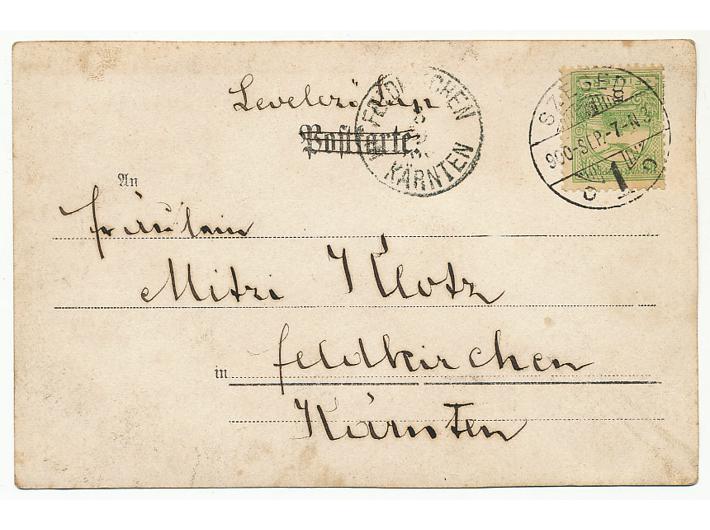 Levelező Lap
Postkarte.
FELDKIRCHEN
KÄRNTEN
SZEGED
900 SZEP.-7-N.3
An
Fräulein
Mitzi Klotz
in Feldkirchen
Kärnten